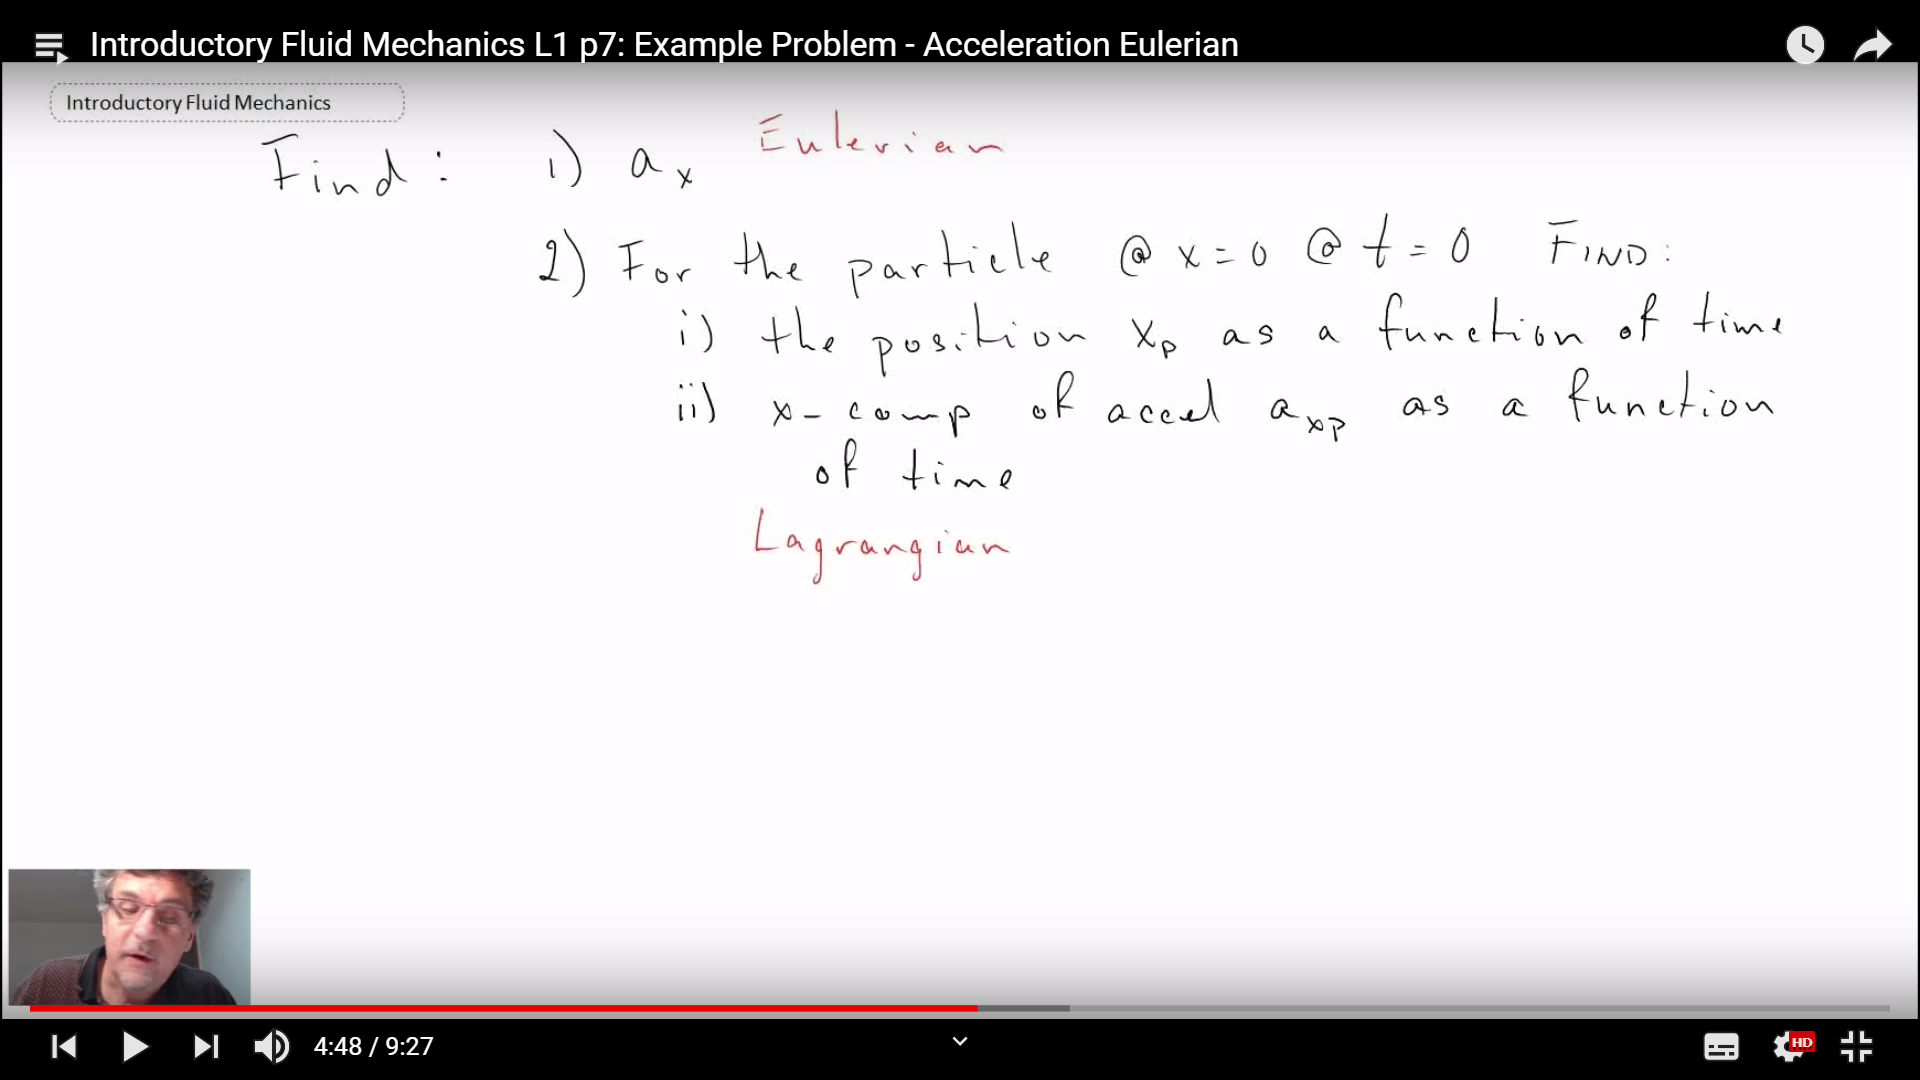 Introductory Fluid Mechanics L1 p7: Example Problem - Acceleration Eulerian
Introductory Fluid Mechanics
Find: 1) ax Eulerian
2) For the particle @ x=0 @ t=0 FIND:
i) the position xp as a function of time
ii) x-comp of accel axp as a function
of time
Lagrangian
4:48 / 9:27
HD